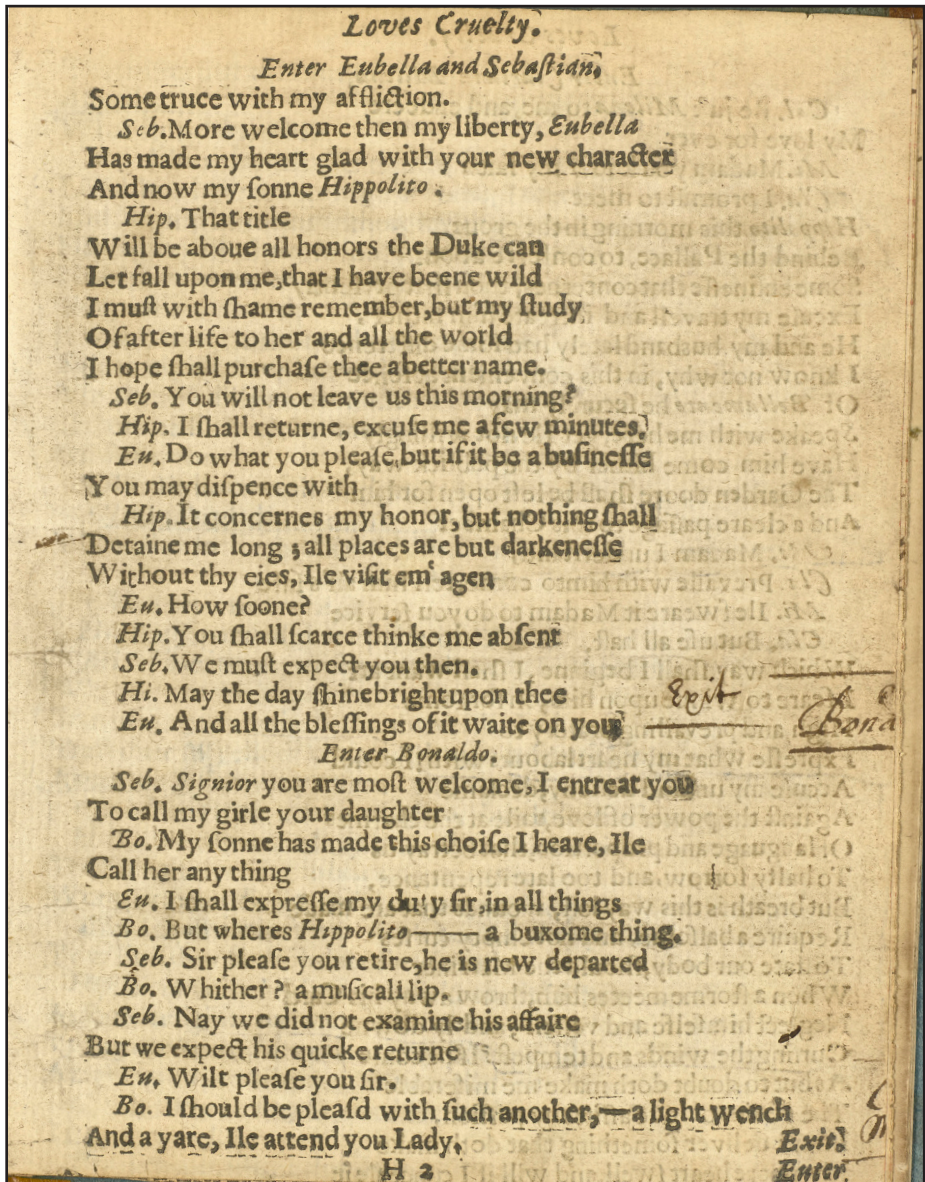 Loves Cruelty.
Enter Eubella and Sebaſtian.
Some truce with my affliction.
Seb. More welcome then my liberty, Eubella
Has made my heart glad with your new character
And now my ſonne Hippolito.
Hip. That title
Will be aboue all honors the Duke can
Let fall upon me, that I have beene wild
I muſt with ſhame remember, but my ſtudy
Of after life to her and all the world
I hope ſhall purchaſe thee a better name.
Seb. You will not leave us this morning?
Hip. I ſhall returne, excuſe me a few minutes.
Eu. Do what you pleaſe, but if it be a buſineſſe
You may diſpence with
Hip. It concernes my honor, but nothing ſhall
Detaine me long ; all places are but darkeneſſe
Without thy eies, Ile viſit em' agen
Eu. How ſoone?
Hip. You ſhall ſcarce thinke me abſent
Seb. We muſt expect you then.
Hi. May the day ſhine bright upon thee
Exit
Eu. And all the bleſſings of it waite on you
Bona
Enter Bonaldo.
Seb. Signior you are moſt welcome, I entreat you
To call my girle your daughter
Bo. My ſonne has made this choiſe I heare, Ile
Call her any thing
Eu. I ſhall expreſſe my duty ſir, in all things
Bo. But wheres Hippolito—— a buxome thing.
Seb. Sir pleaſe you retire, he is new departed
Bo. Whither? a muſicall lip.
Seb. Nay we did not examine his affaire
But we expect his quicke returne
Eu. Wilt pleaſe you ſir.
Bo. I ſhould be pleaſd with ſuch another,—a light wench
And a yare, Ile attend you Lady. Exit.
H 2 Enter